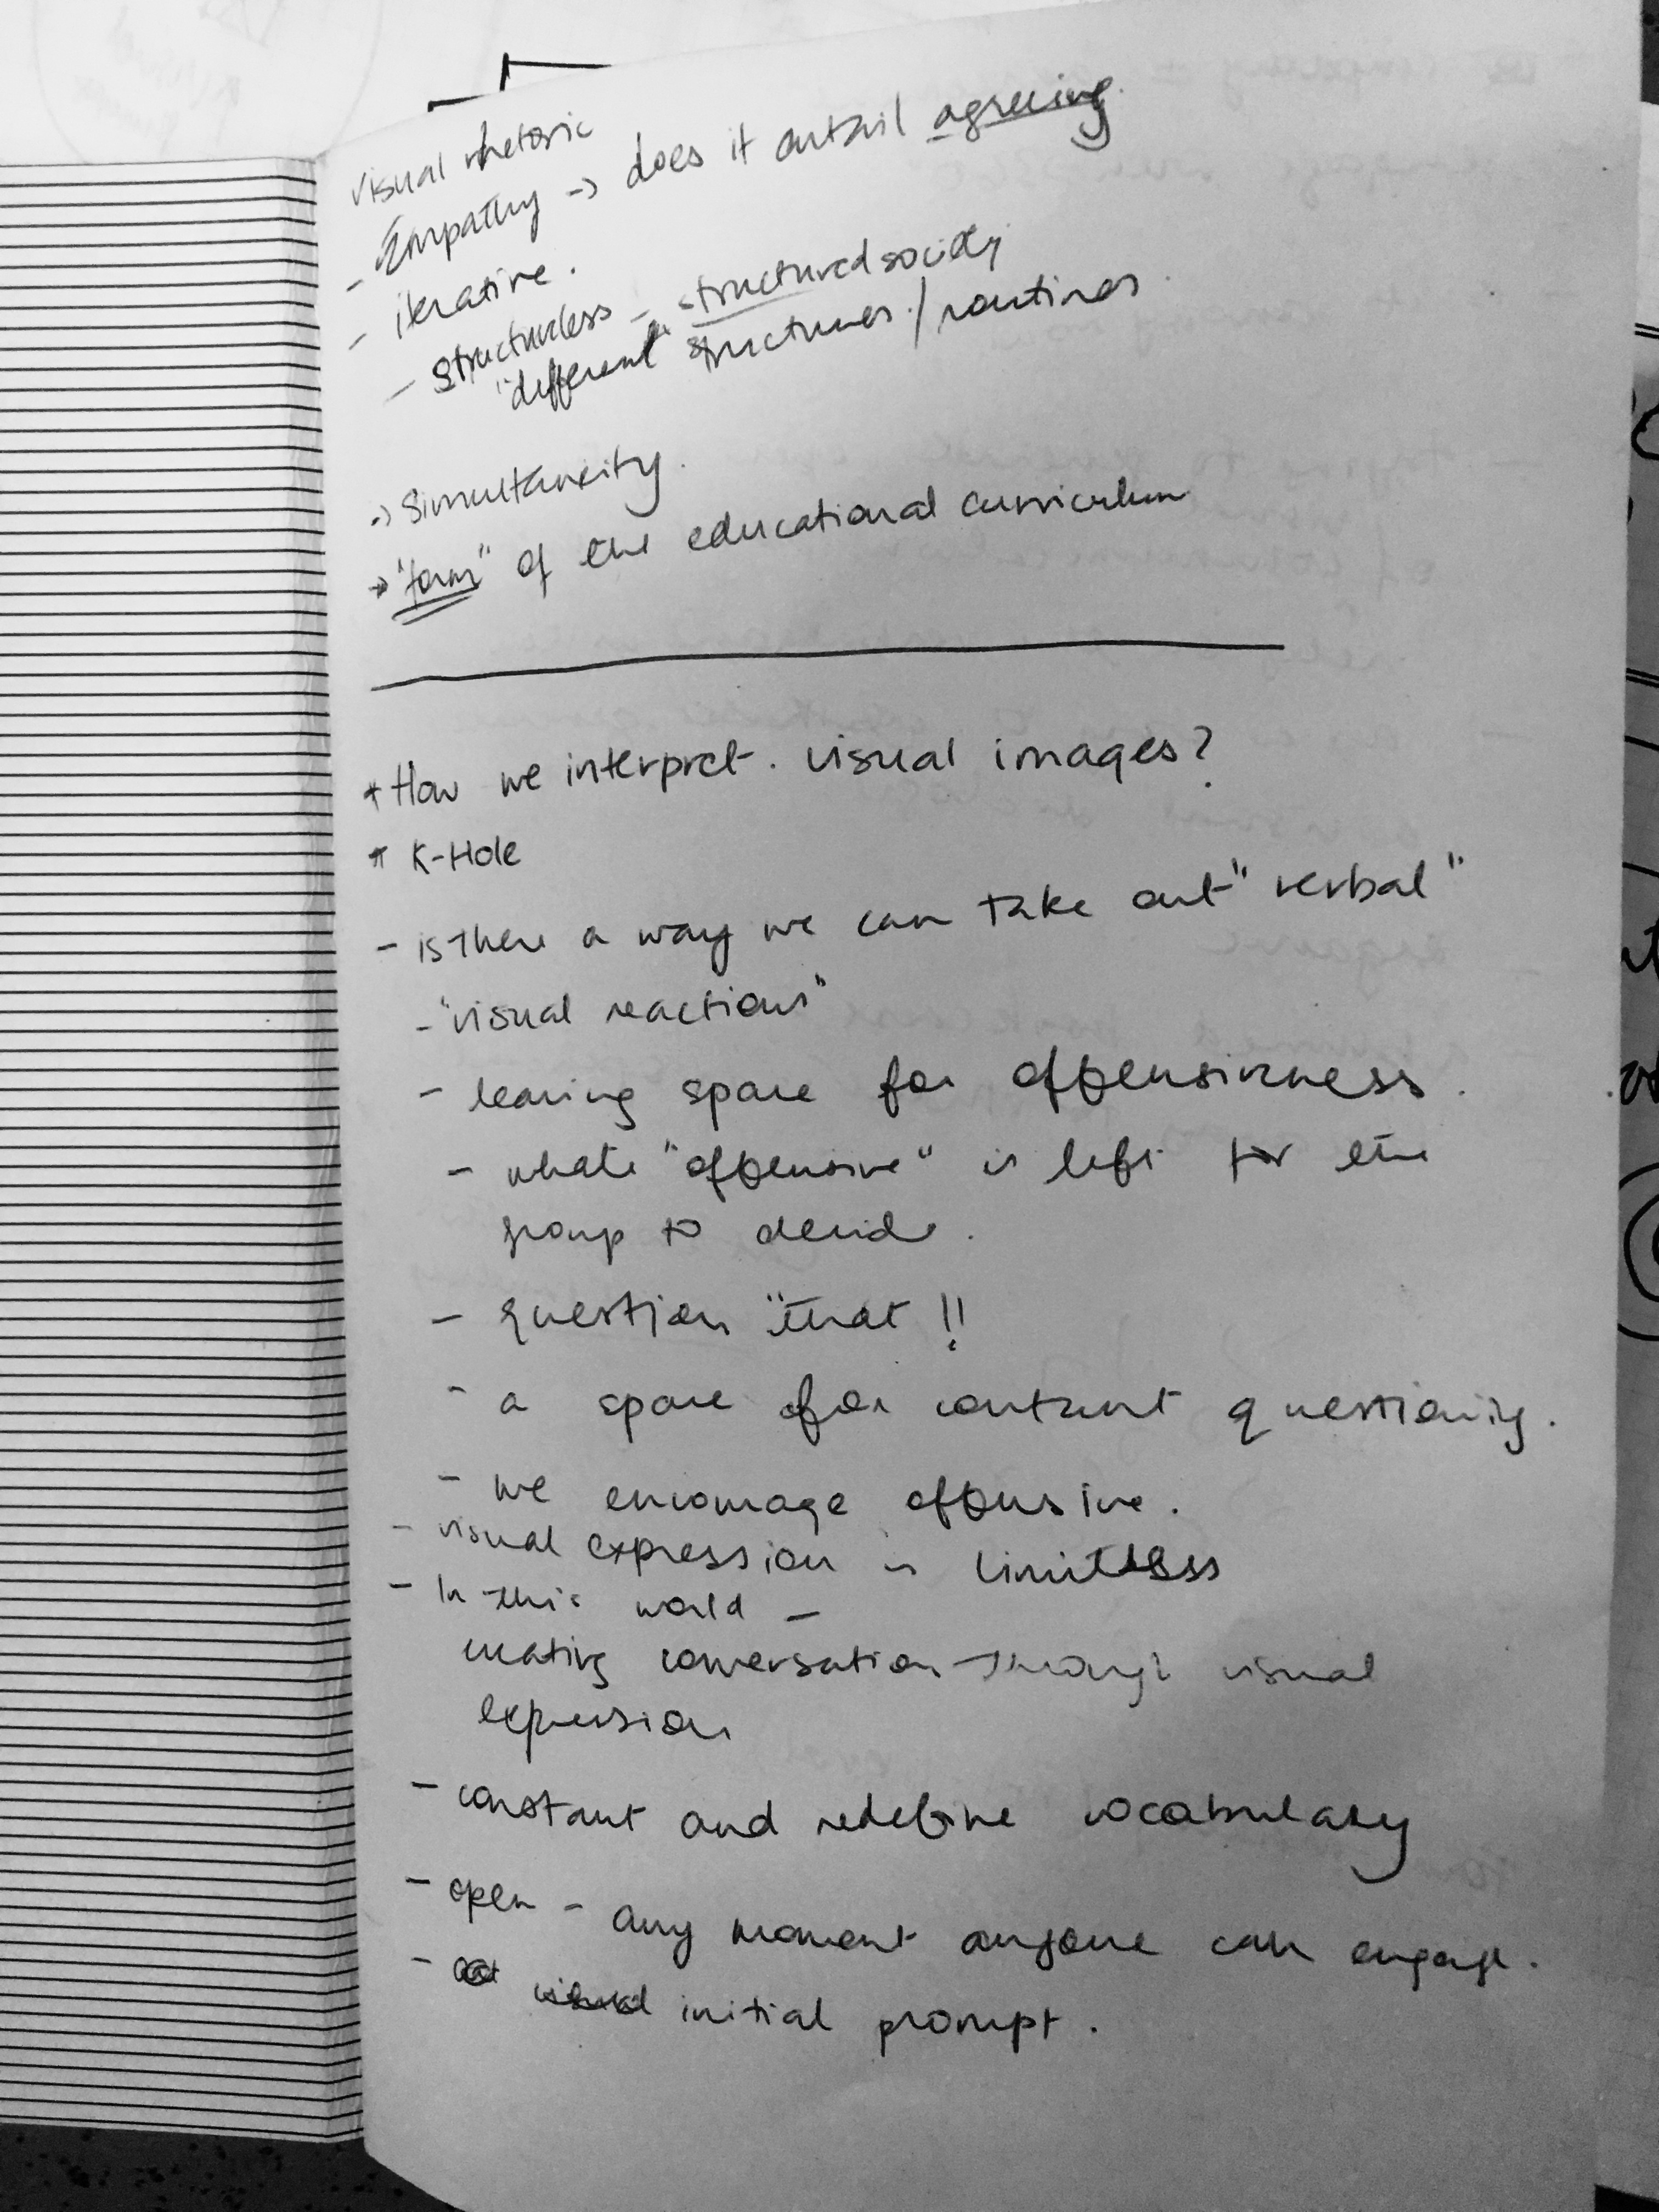 visual rhetoric
- Empathy -> does it entail agreeing.
- iterative.
- Structureless - structured society
"different" structures / routines.
-> Simultaneity.
-> "form" of the educational curriculum
* How we interpret. visual images?
* K-Hole
- is there a way we can take out "verbal"
- "visual reactions"
- leaving space for offensiveness.
- whats "offensive" is left for the
group to decide.
- question "that!!
- a space for constant questioning.
- we encourage offensive.
- visual expression is limitless
- In this world -
creating conversation through visual
expression
- constant and redefine vocabulary
- open - any moment anyone can engage.
- initial prompt.